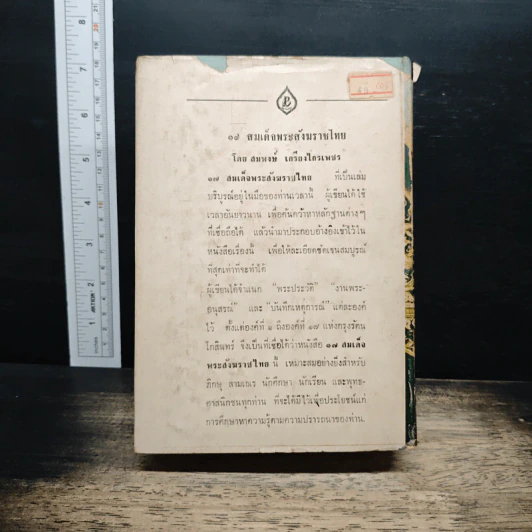 ๑๗ สมเด็จพระสังฆราชไทย
โดย สมพงษ์ เกรียงไกรเพชร
๑๗ สมเด็จพระสังฆราชไทย ที่เป็นเล่ม
บริบูรณ์อยู่ในมือของท่านเวลานี้ ผู้เขียนได้ใช้
เวลาอันยาวนาน เพื่อค้นคว้าหาหลักฐานต่างๆ
ที่เชื่อถือได้ แล้วนำมาประกอบอ้างอิงเข้าไว้ใน
หนังสือเรื่องนี้ เพื่อให้ละเอียดชัดเจนสมบูรณ์
ที่สุดเท่าที่จะทำได้
ผู้เขียนได้จำแนก "พระประวัติ" "งานพระ-
อนุสรณ์" และ "บันทึกเหตุการณ์" แต่ละองค์
ไว้ ตั้งแต่องค์ที่ ๑ ถึงองค์ที่ ๑๗ แห่งกรุงรัตน
โกสินทร์ จึงเป็นที่เชื่อได้ว่าหนังสือ ๑๗ สมเด็จ
พระสังฆราชไทย นี้ เหมาะสมอย่างยิ่งสำหรับ
ภิกษุ สามเณร นักศึกษา นักเรียน และพุทธ-
ศาสนิกชนทุกท่าน ที่จะได้มีไว้เพื่อประโยชน์แก่
การศึกษาหาความรู้ตามความปรารถนาของท่าน.